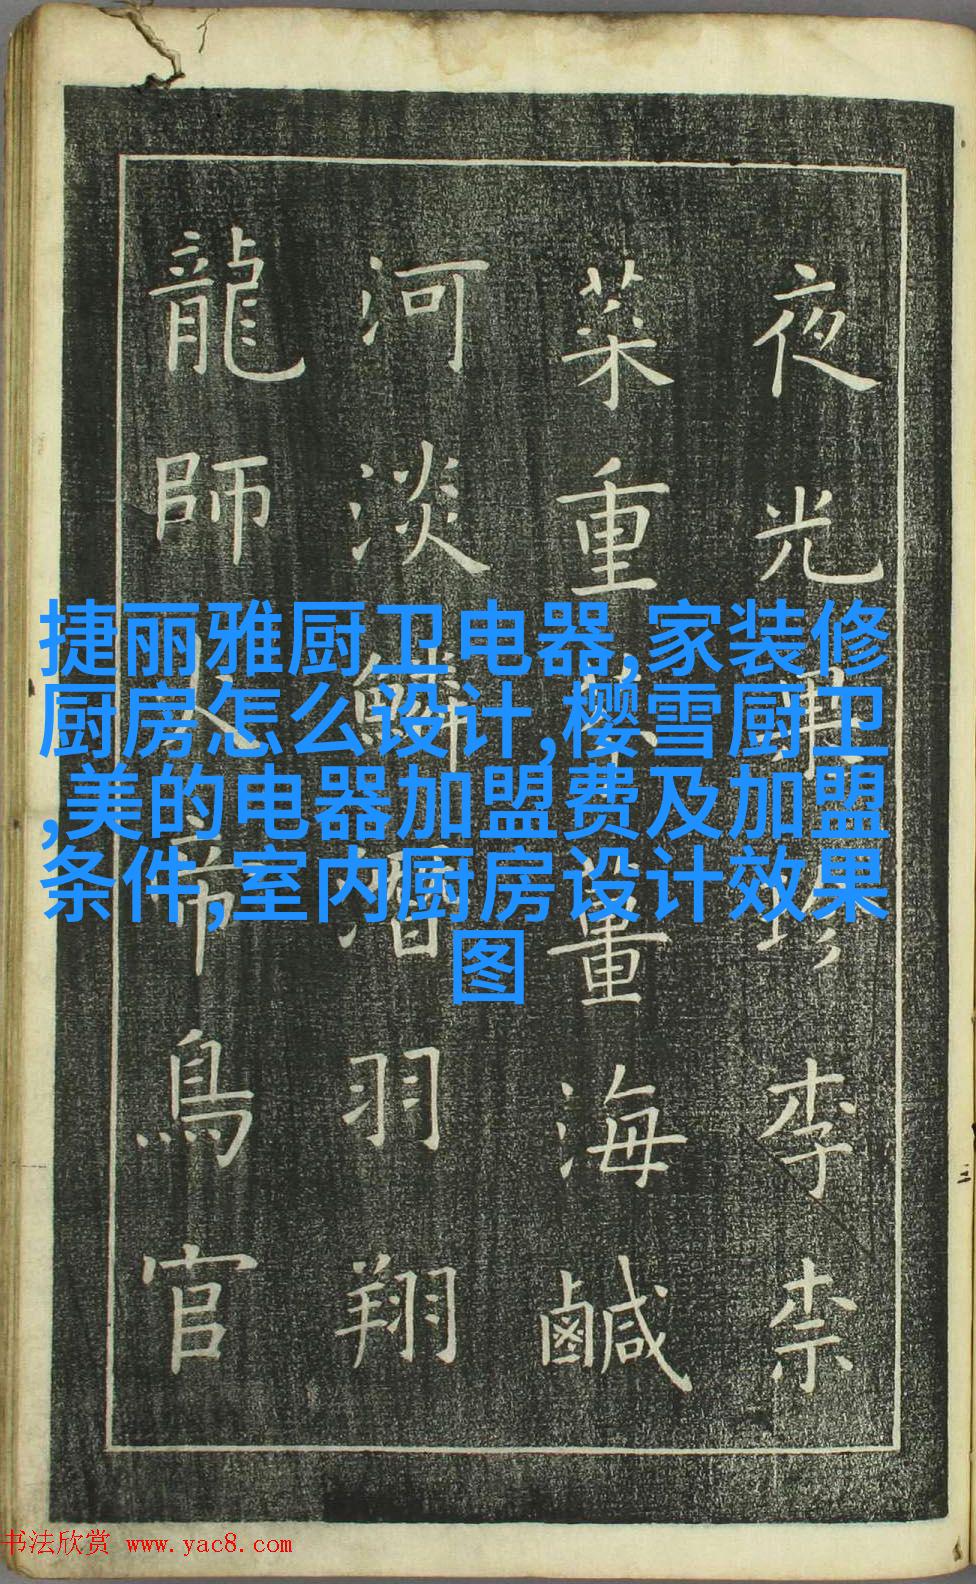 夜光果珍李柰
菜重芥薑海鹹
河淡鱗潛羽翔
龍師火帝鳥官
捷丽雅厨卫电器,家装修
厨房怎么设计,樱雪厨卫
,美的电器加盟费及加盟
条件,室内厨房设计效果
图
书法欣赏 www.yac8.com